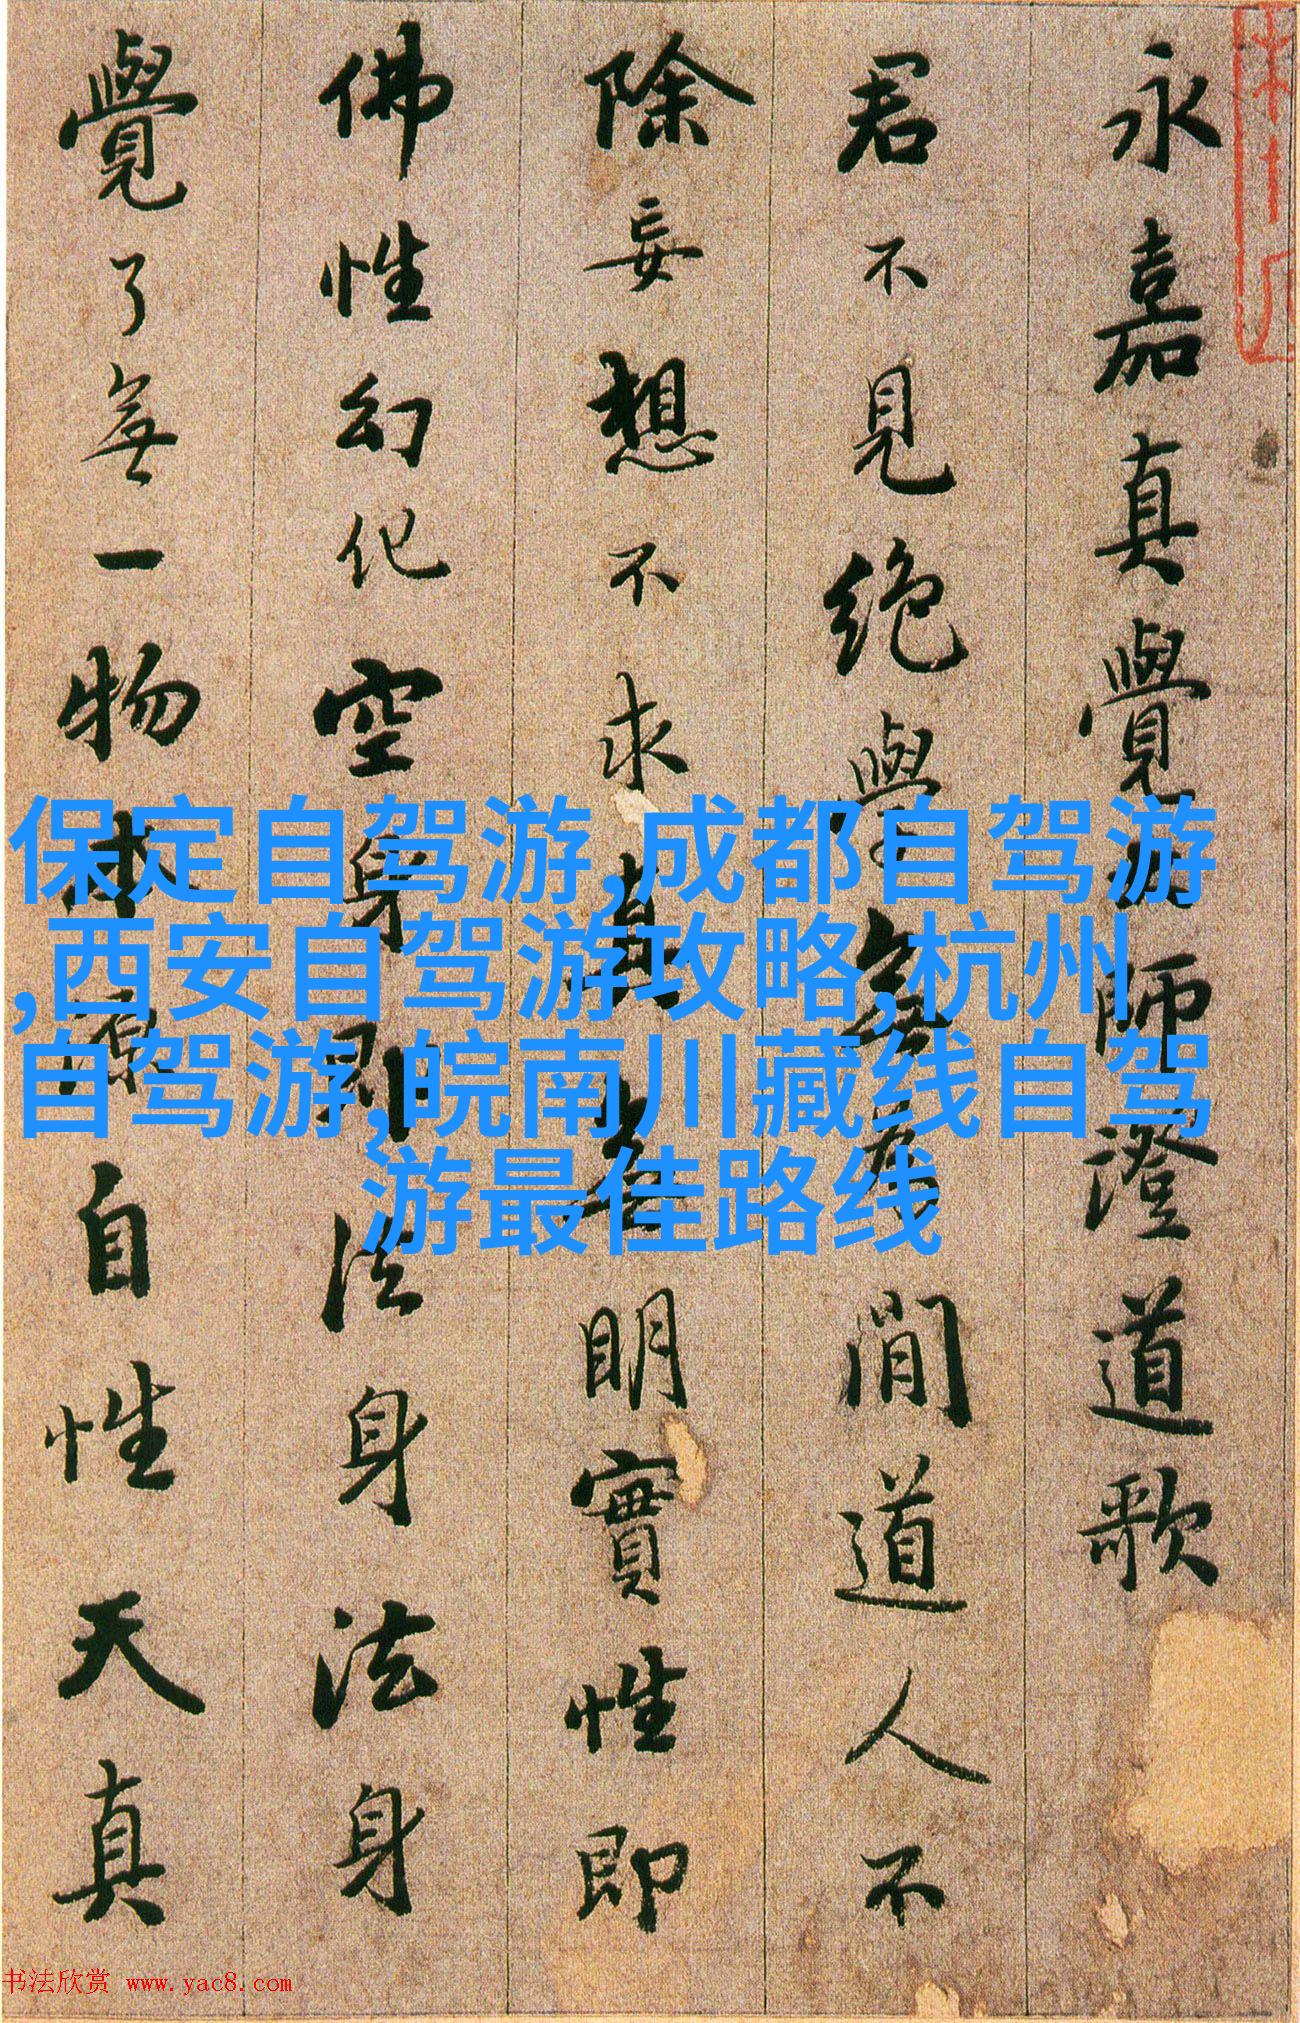 永嘉真覺師證道歌
君不見絕學無為閒道人不
除妄想不求真無明實性即
佛性幻化空身即法身法身
覺了無一物本源自性天真
保定自驾游,成都自驾游
,西安自驾游攻略,杭州
自驾游,皖南川藏线自驾
游最佳路线
书法欣赏 www.yac8.com